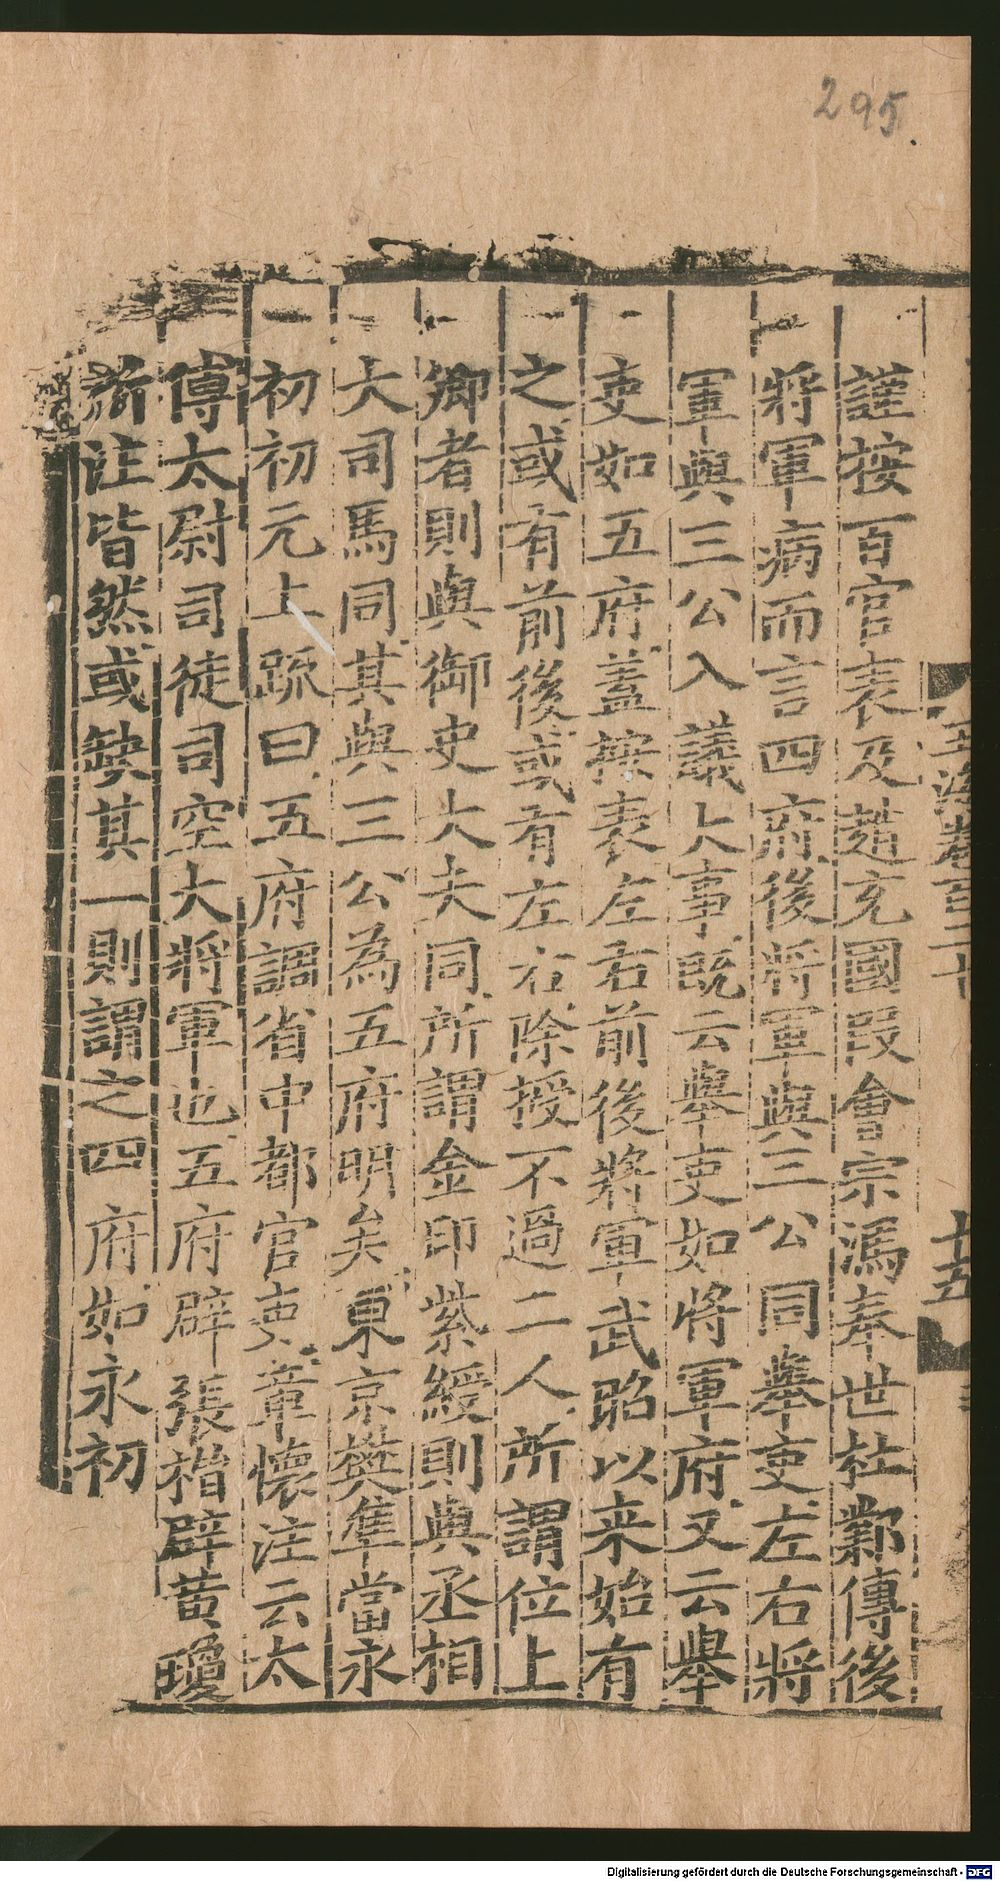 295.
謹按百官表及趙充國段會宗馮奉世杜鄴傳後
將軍病而言四府後將軍與三公同舉吏左右將
軍與三公入議大事既云舉吏如將軍府又云舉
吏如五府蓋按表左右前後將軍武昭以来始有
之或有前後或有左右除授不過二人所謂位上
卿者則與御史大夫同所謂金印紫綬則與丞相
大司馬同其與三公為五府明矣東京樊準當永
初初元上疏曰五府調省中都官吏章懷注云太
傅太尉司徒司空大將軍也五府辟張楷辟黃瓊
前注皆然或缺其一則謂之四府如永初
十五
Digitalisierung gefördert durch die Deutsche Forschungsgemeinschaft - DFG